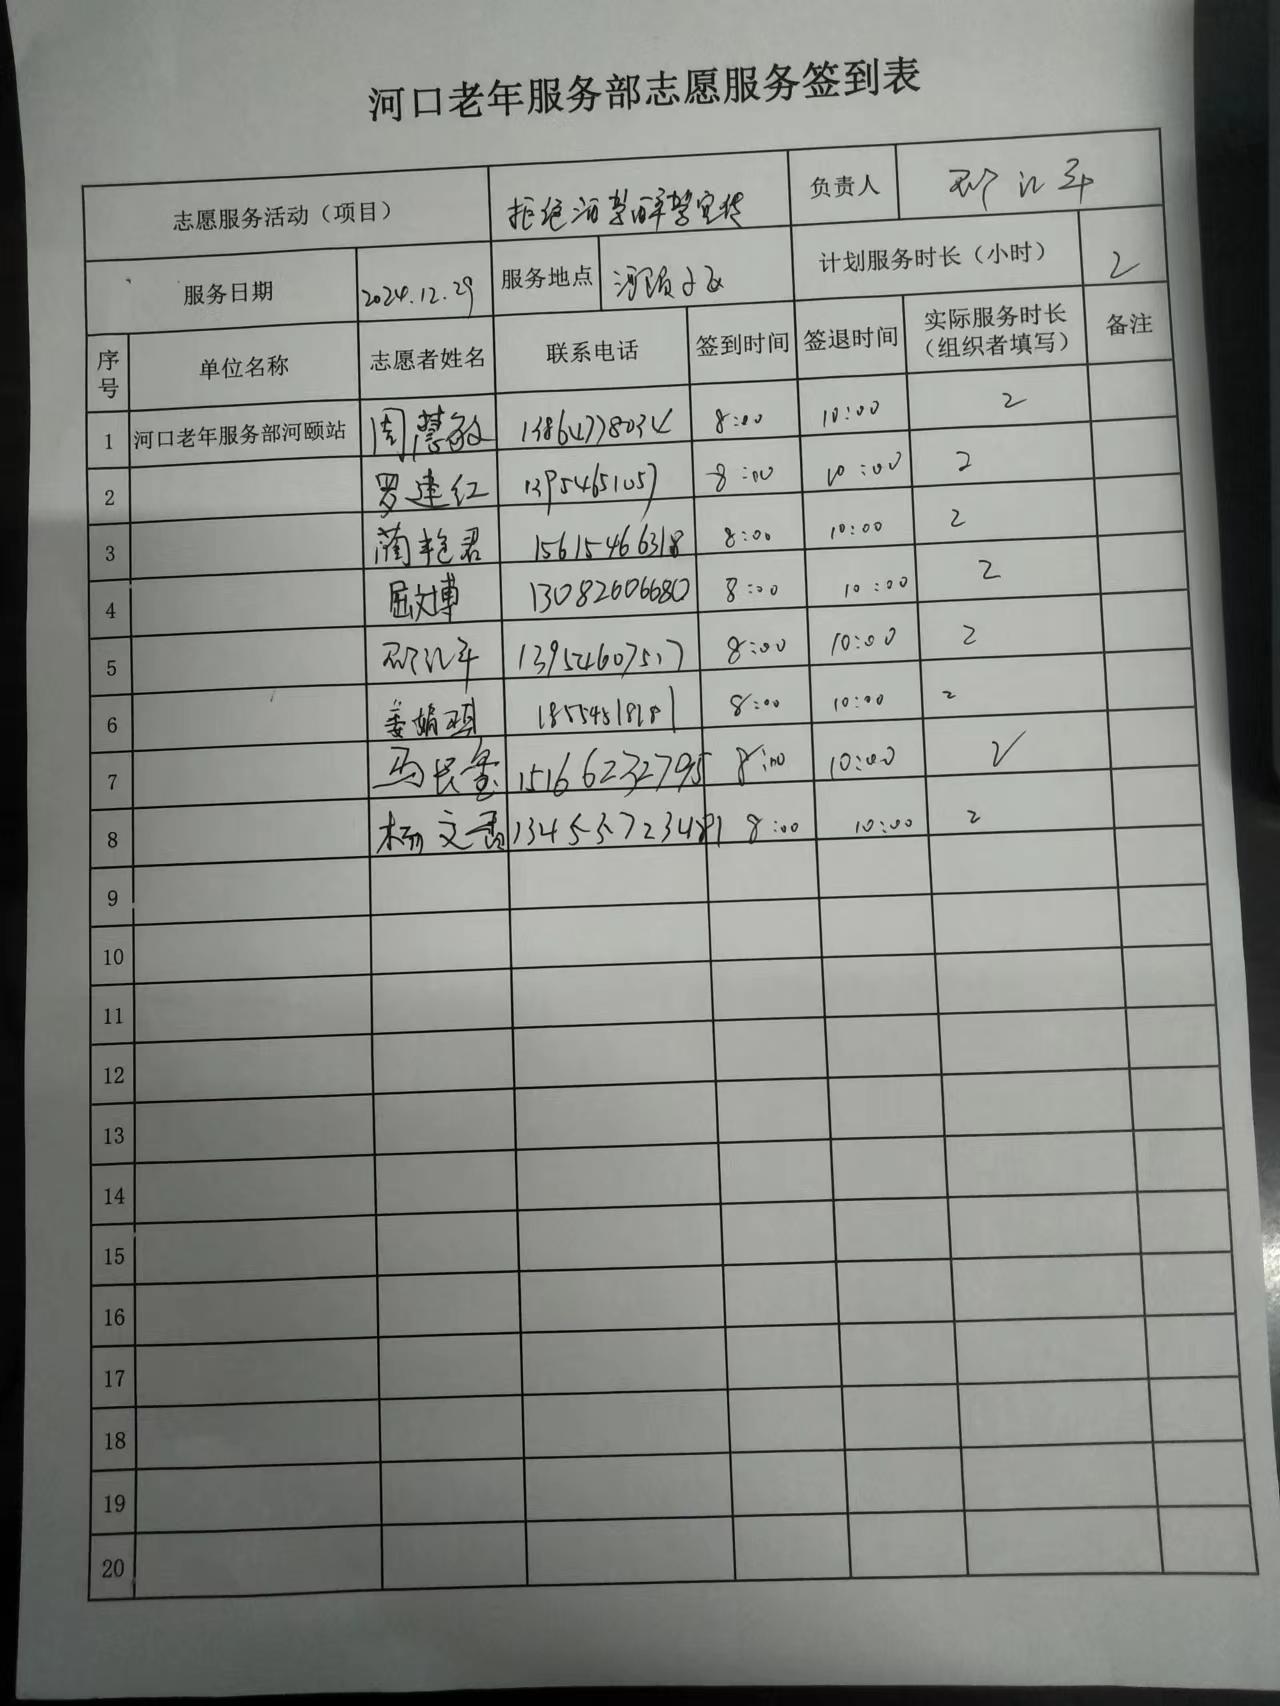 河口老年服务部志愿服务签到表
志愿服务活动（项目） 拒绝酒驾醉驾宣传 负责人
服务日期 2024.12.29 服务地点 河颐小区 计划服务时长（小时） 2
序号 单位名称 志愿者姓名 联系电话 签到时间 签退时间 实际服务时长（组织者填写） 备注
1 河口老年服务部河颐站 周慧敏 13864778034 8:00 10:00 2
2 罗建红 13954651057 8:00 10:00 2
3 蔺艳君 15615466318 8:00 10:00 2
4 屈文博 13082606680 8:00 10:00 2
5 13954607517 8:00 10:00 2
6 姜娟 8:00 10:00 2
7 马长金 15166232795 8:00 10:00 2
8 杨文 8:00 10:00 2
9
10
11
12
13
14
15
16
17
18
19
20